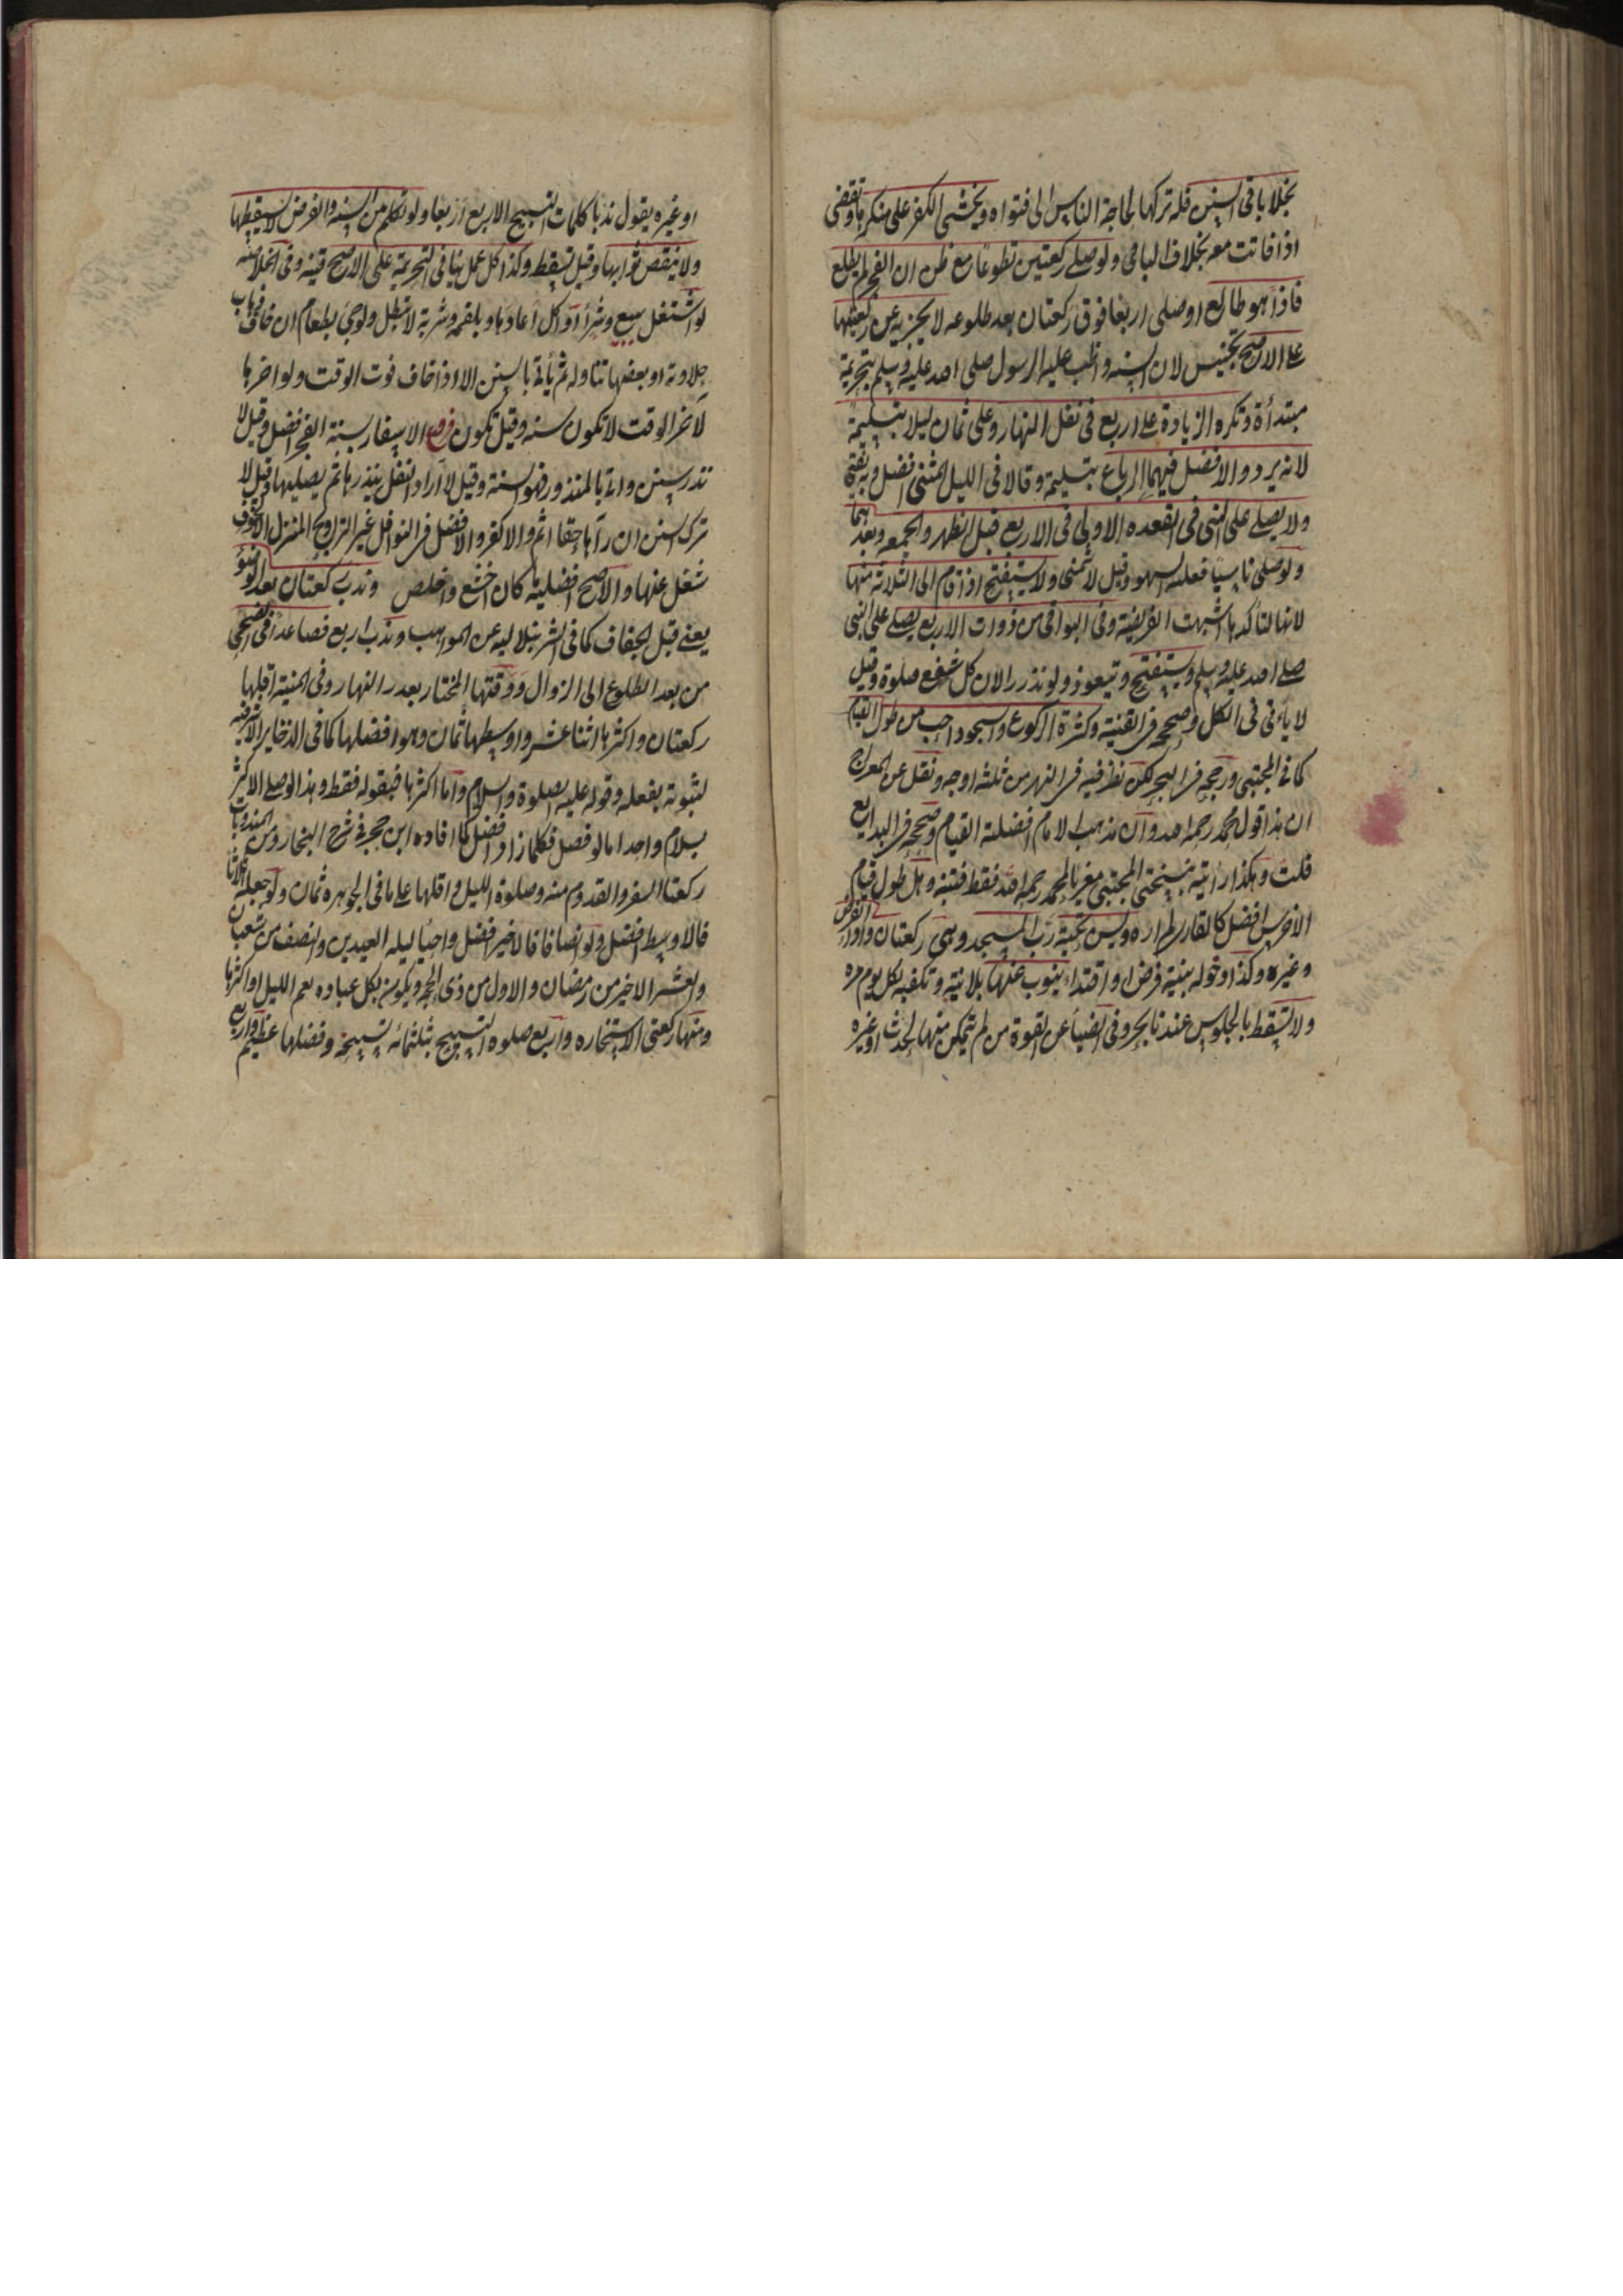 بخلاف باقى السنن فله تركها لحاجة الناس الى فتواه ويخشى الكفر على منكرها وتقضى
اذا فاتت معه بخلاف الباقى ولو صلى ركعتين تطوعا مع ظن ان الفجر لم يطلع
فاذا هو طالع او صلى اربعا فوقع ركعتان بعد طلوعه لا يجزيه عن ركعتيها
على الاصح تجنيس لان السنة ما واظب عليه الرسول صلى الله عليه وسلم بتحريمة
مبتدأة وتكره الزيادة على اربع فى نفل النهار وعلى ثمان ليلا بتسليمة
لانه لم يرد والافضل فيهما الرباع بتسليمة وقالا فى الليل المثنى افضل وبه يفتى
ولا يصلى على النبى فى القعدة الاولى فى الاربع قبل الظهر والجمعة وبعدها
ولو صلى ناسيا فعليه السهو وقيل لا شمنى ولا يستفتح اذا قام الى الثلاثة منها
لانها لتأكدها اشبهت الفريضة وفى البواقى من ذوات الاربع يصلى على النبى
صلى الله عليه وسلم ويستفتح ويتعوذ ولو نذرا لان كل شفع صلوة وقيل
لا يأتى فى الكل وصححه فى القنية وكثرة الركوع والسجود احب من طول القيام
كما فى المجتبى ورجحه فى البحر لكن نظر فيه فى النهر من ثلثة اوجه ونقل عن المعراج
ان هذا قول محمد رحمه الله وان مذهب الامام افضلية القيام وصححه فى البدايع
قلت وهكذا رأيته بنسختى المجتبى معزيا لمحمد رحمه الله فقط فتنبه وهل طول قيام
الاخرس افضل كالقارى لم اره ويسن تحية رب المسجد وهى ركعتان واداء الفرض
وغيره وكذا دخوله بنية فرض او اقتداء ينوب عنها بلا نية وتكفيه لكل يوم مرة
ولا تسقط بالجلوس عندنا بحر وفى الضياء عن القوة من لم يتمكن منها لحدث او غيره
او غيره يقول ندبا كلمات التسبيح الاربع اربعا ولو تكلم بين السنة والفرض لا يسقطها
ولا ينقص ثوابها وقيل تسقط وكذا كل عمل ينافى التحريمة على الاصح قنية وفى الخلاصة
لو اشتغل ببيع وشراء او اكل اعادها وبلقمة وشربة لا تبطل ولو جئ بطعام ان خاف ذهاب
حلاوته او بعضها تناوله ثم يأتى بالسنن الا اذا خاف فوت الوقت ولو اخرها
لآخر الوقت لا تكون سنة وقيل تكون فروع الاسفار بسنة الفجر افضل وقيل لا
نذر السنن واتى بالمنذور فهو السنة وقيل لا اراد النفل ينذرها ثم يصليها وقيل لا
ترك السنن ان رآها حقا اثم والا كفر والافضل فى النوافل غير التراويح المنزل الا لخوف
شغل عنها والاصح افضلية ما كان اخشع واخلص وندب ركعتان بعد الوضوء
يعنى قبل الجفاف كما فى الشرنبلالية عن المواهب وندب اربع فصاعدا فى الضحى
من بعد الطلوع الى الزوال ووقتها المختار بعد ربع النهار وفى المنية اقلها
ركعتان واكثرها اثنا عشر واوسطها ثمان وهو افضلها كما فى الذخاير الاشرفية
لثبوته بفعله وقوله عليه الصلوة والسلام واما اكثرها فبقوله فقط وهذا لو صلى الاكثر
بسلام واحد اما لو فصل فكلما زاد افضل كما افاده ابن حجر فى شرح البخارى ومن المندوبات
ركعتا السفر والقدوم منه وصلوة الليل واقلها على ما فى الجوهرة ثمان ولو جعله اثلاثا
فالاوسط افضل ولو انصافا فالاخير افضل واحياء ليلة العيدين والنصف من شعبان
والعشر الاخير من رمضان والاول من ذى الحجة ويكون بكل عبادة تعم الليل او اكثرها
ومنها ركعتى الاستخارة واربع صلوة التسبيح بثلثمائة تسبيحة وفضلها عظيم واربع